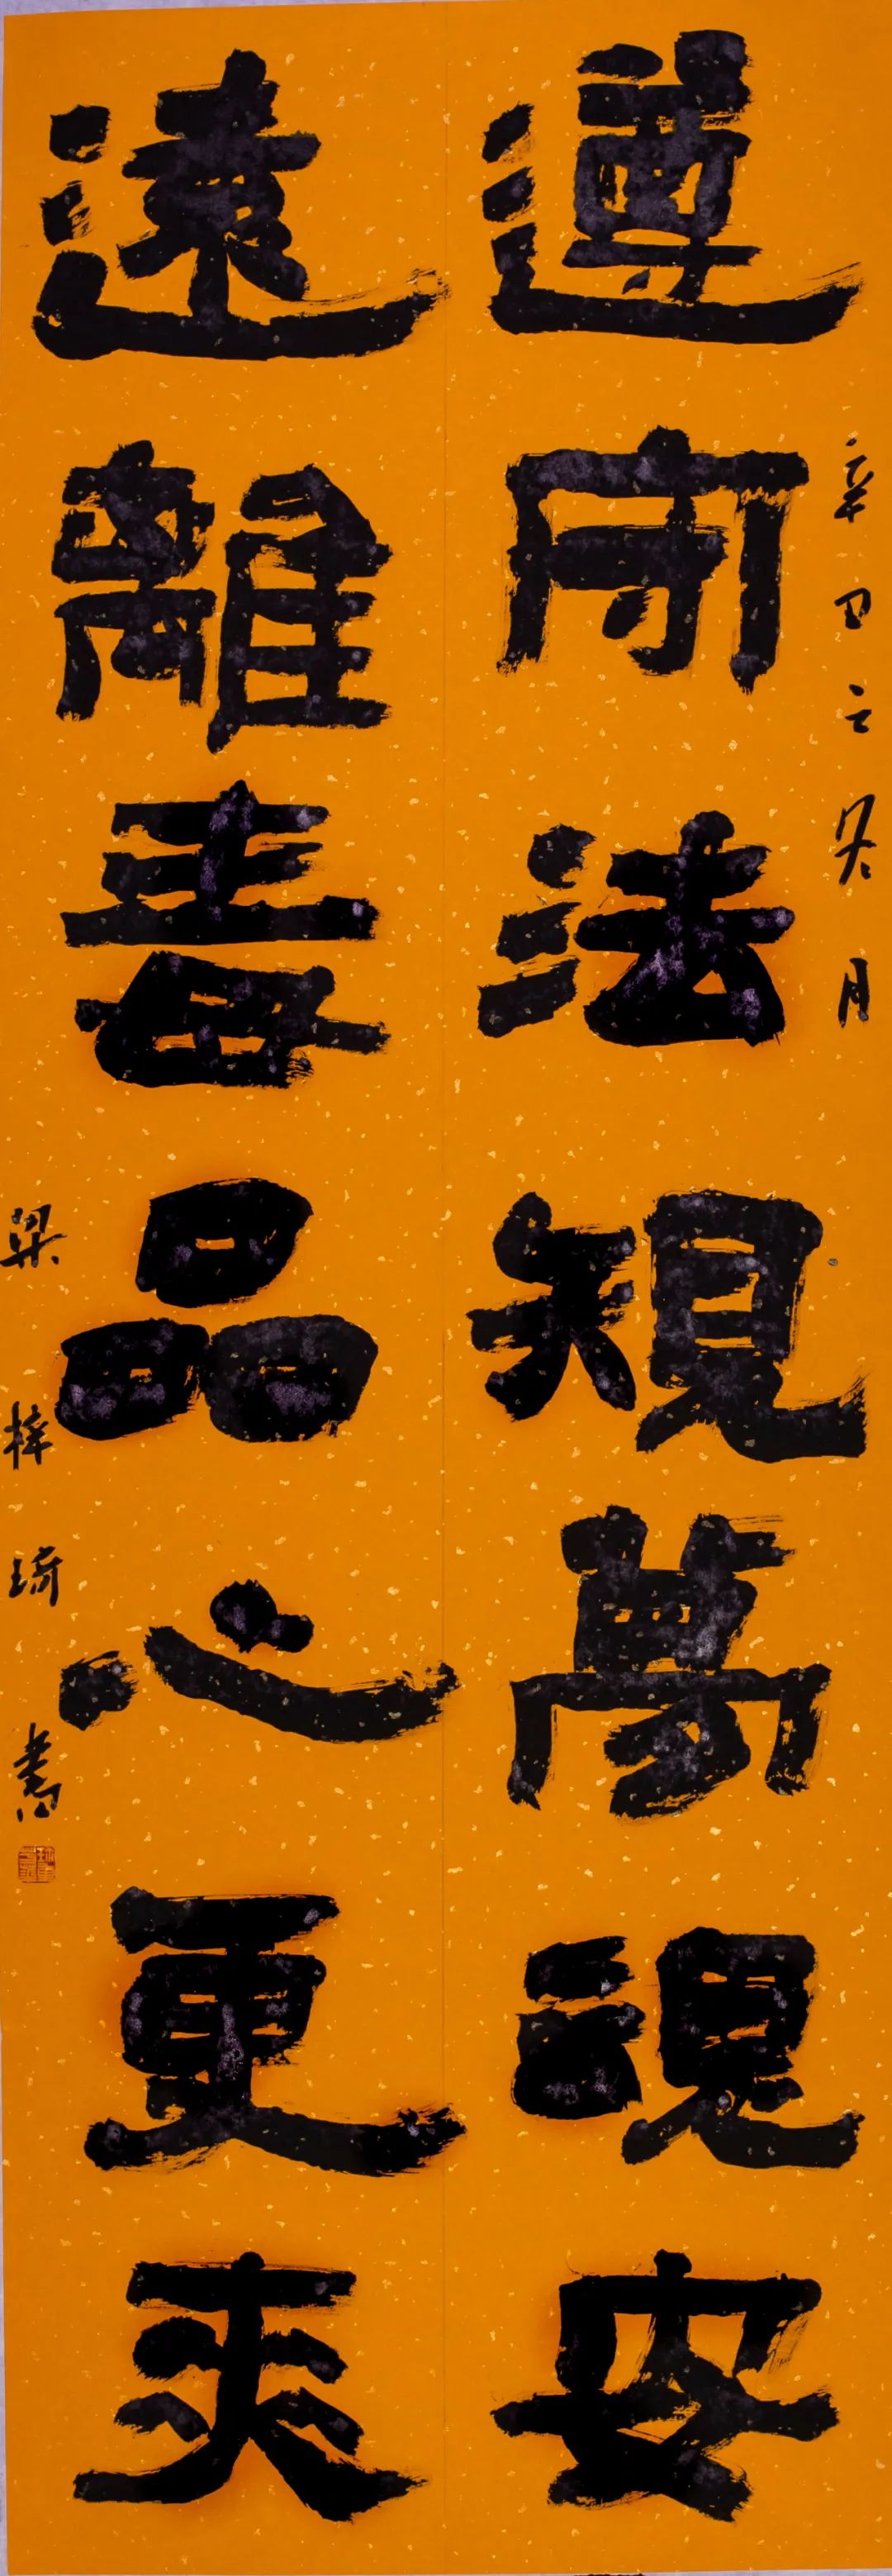 辛丑之冬月
遵守法規夢魂安
遠離毒品心更爽
梁梓琦書